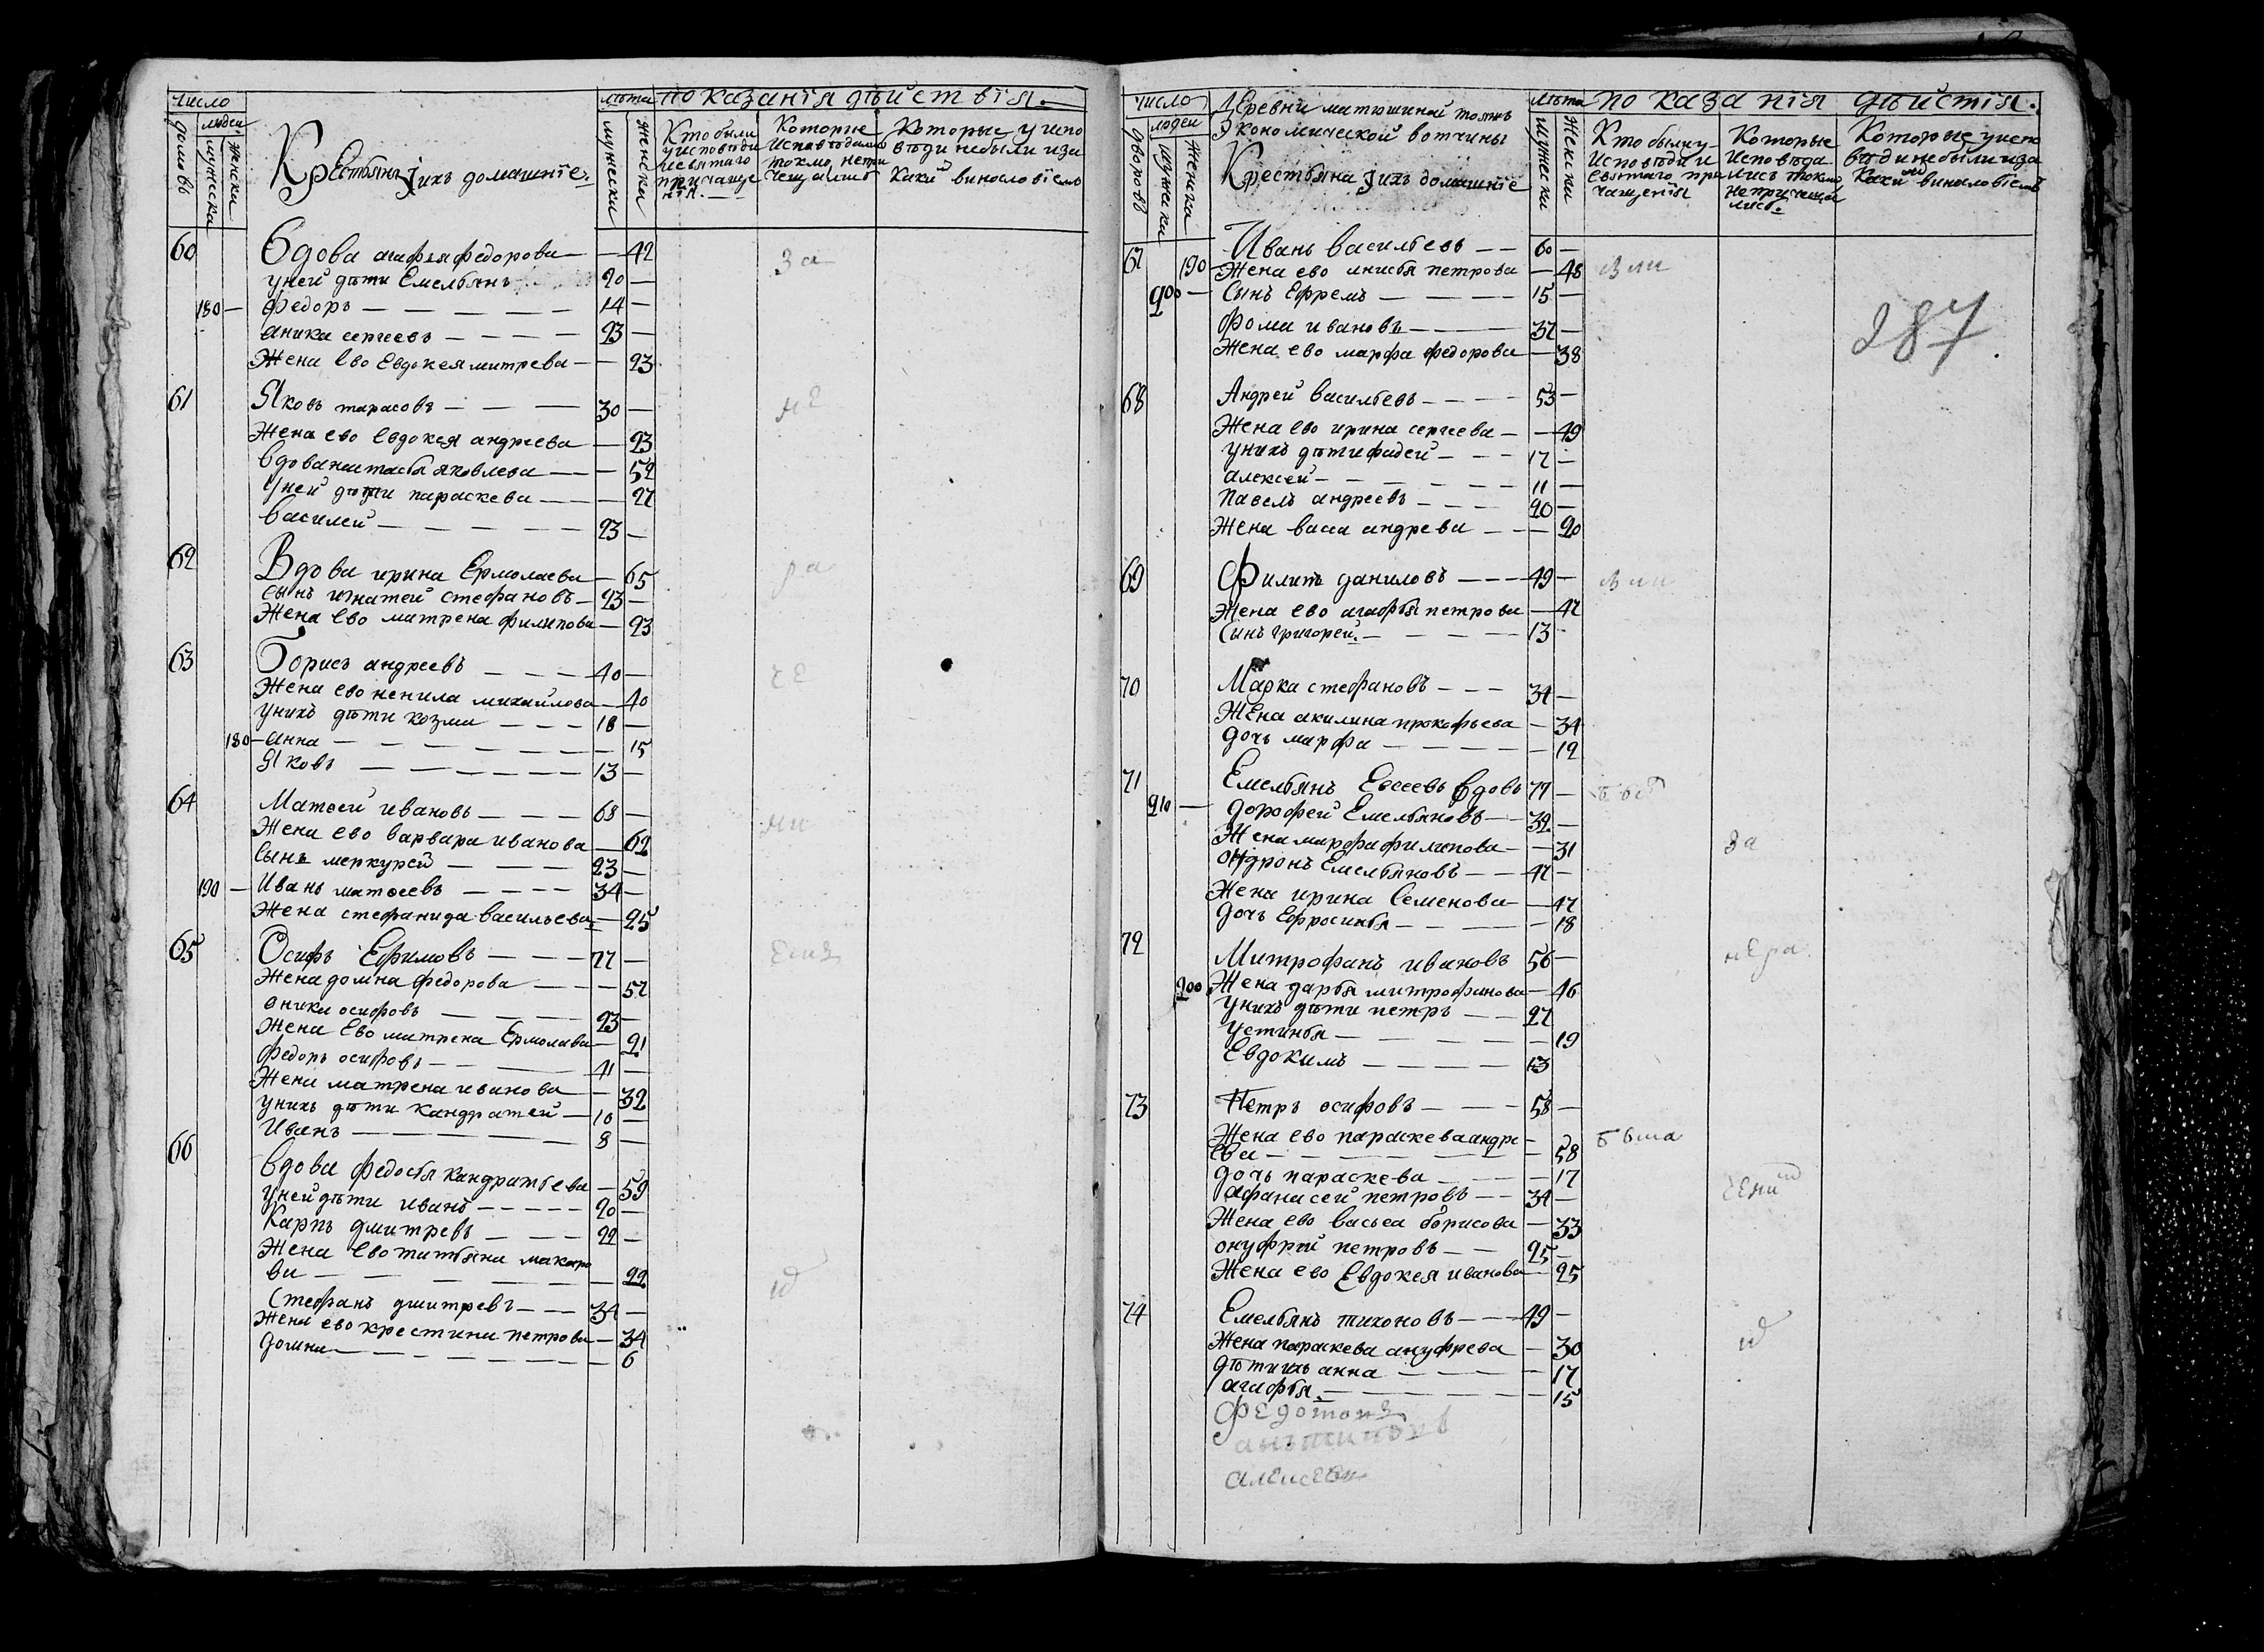 число
людей
домовъ
мужеска
женска
Крестьянъ јихъ домашние:
лѣта
мужески
женски
показанїя дѣйствїя.
Кто были у исповѣди исвятаго причащенїя.
Которые исповѣдались токмо, непричащались
Которые у исповѣди небыли иза какимъ винословїемъ
60 Вдова агафья федорова — 42 за
уней дѣти Емельянъ 20 —
180 — федоръ — 14 —
аника сергеевъ — 23 —
Жена ево Евдокея митрева — 23
61 Яковъ тарасовъ — 30 — не
Жена ево евдокея андреева — 23
вдова настасья яковлева — 52
уней дѣти параскева — 27
василей — 23 —
62 Вдова ирина Ермолаева — 65 ра
сынъ игнатей стефановъ — 23 —
Жена ево матрена филипова — 23
63 Борисъ андреевъ — 40 — че
Жена ево ненила михайлова — 40
унихъ дѣти козма — 18 —
180 — анна — 15
Яковъ — 13 —
64 Матвей ивановъ — 68 — ни
Жена ево варвара иванова — 62
сынъ меркурей — 23 —
190 — Иванъ матвеевъ — 34 —
Жена стефанида васильева — 25
65 Осипъ Ефимовъ — 77 —
Жена домна федорова — 57
оника осиповъ — 23 —
Жена Ево матрена Ермолаева — 21
федоръ осиповъ — 41 —
Жена матрена иванова — 32
унихъ дѣти кандратей — 10 —
Иванъ — 8 —
66 вдова федосья кандратьева — 59
уней дѣти иванъ — 20 —
Карпъ дмитревъ — 22 —
Жена Ево татьяна макаро
ва — 22
Стефанъ дмитревъ — 34 —
Жена ево крестина петрова — 34
домна — 6
число
людей
дворовъ
мужески
женска
дЕревни матюшиной тоежъ
Экономической вотчины
Крестьяна јихъ домашние
лѣта
мужески
женски
показанїя дѣйстїя.
Кто были у исповѣди и святаго причащенїя
Которые исповѣдались токмо непричащались.
Которые уисповѣди небыли иза какимъ винословїемъ
287
67 Иванъ васильевъ — 60 —
190 — Жена ево анисья петрова — 48 были
200 — Сынъ Ефремъ — 15 —
фома ивановъ — 37 —
Жена ево марфа федорова — 38
68 Андрей васильевъ — 53 —
Жена ево ирина сергеева — 49
унихъ дѣти фадей — 17 —
алексей — 11 —
павелъ андреевъ — 20 —
Жена васса андрева — 20
69 Филипъ даниловъ — 49 — были
Жена ево агафья петрова — 47
Сынъ григорей — 13
70 Марка стефановъ — 34 —
ЖЕна акилина прокофьева — 34
дочь марфа — 12
71 Емельянъ Евсеевъ вдовъ 77 —
210 — дорофей Емельяновъ — 32 —
Жена марфа филипова — 31 за
ондронъ Емельяновъ — 47 —
Жена ирина Семенова — 47
дочь Ефросинья — 18
72 Митрофанъ ивановъ 56 — нера
200 Жена дарья митрофанова — 46
унихъ дѣти петръ — 27
устинья — 19
Евдокимъ — 13
73 Петръ осиповъ — 58 —
Жена ево параскева андре
ева — 58
дочь параскева — 17
афанасей петровъ — 34 — чени
Жена ево васьса борисова — 33
онуфрий петровъ — 25 —
Жена ево Евдокея иванова — 25
74 Емельянъ тихоновъ — 49 —
Жена параскева ануфрева — 30
дѣти ихъ анна — 17
агафья — 15